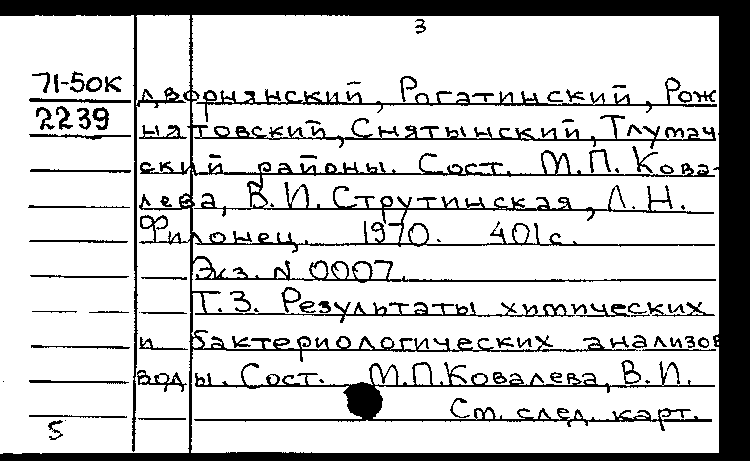 3
71-50К
2239
дворнянский, Рогатинский, Рож
нятовский, Снятынский, Тлумач-
ский районы. Сост. М.П. Кова-
лева, В.И. Струтинская, Л.Н.
Филонец. 1970. 401с.
Экз. N 0007.
Т.3. Результаты химических
и бактериологических анализов
воды. Сост. М.П.Ковалева, В.И.
См. след. карт.
5